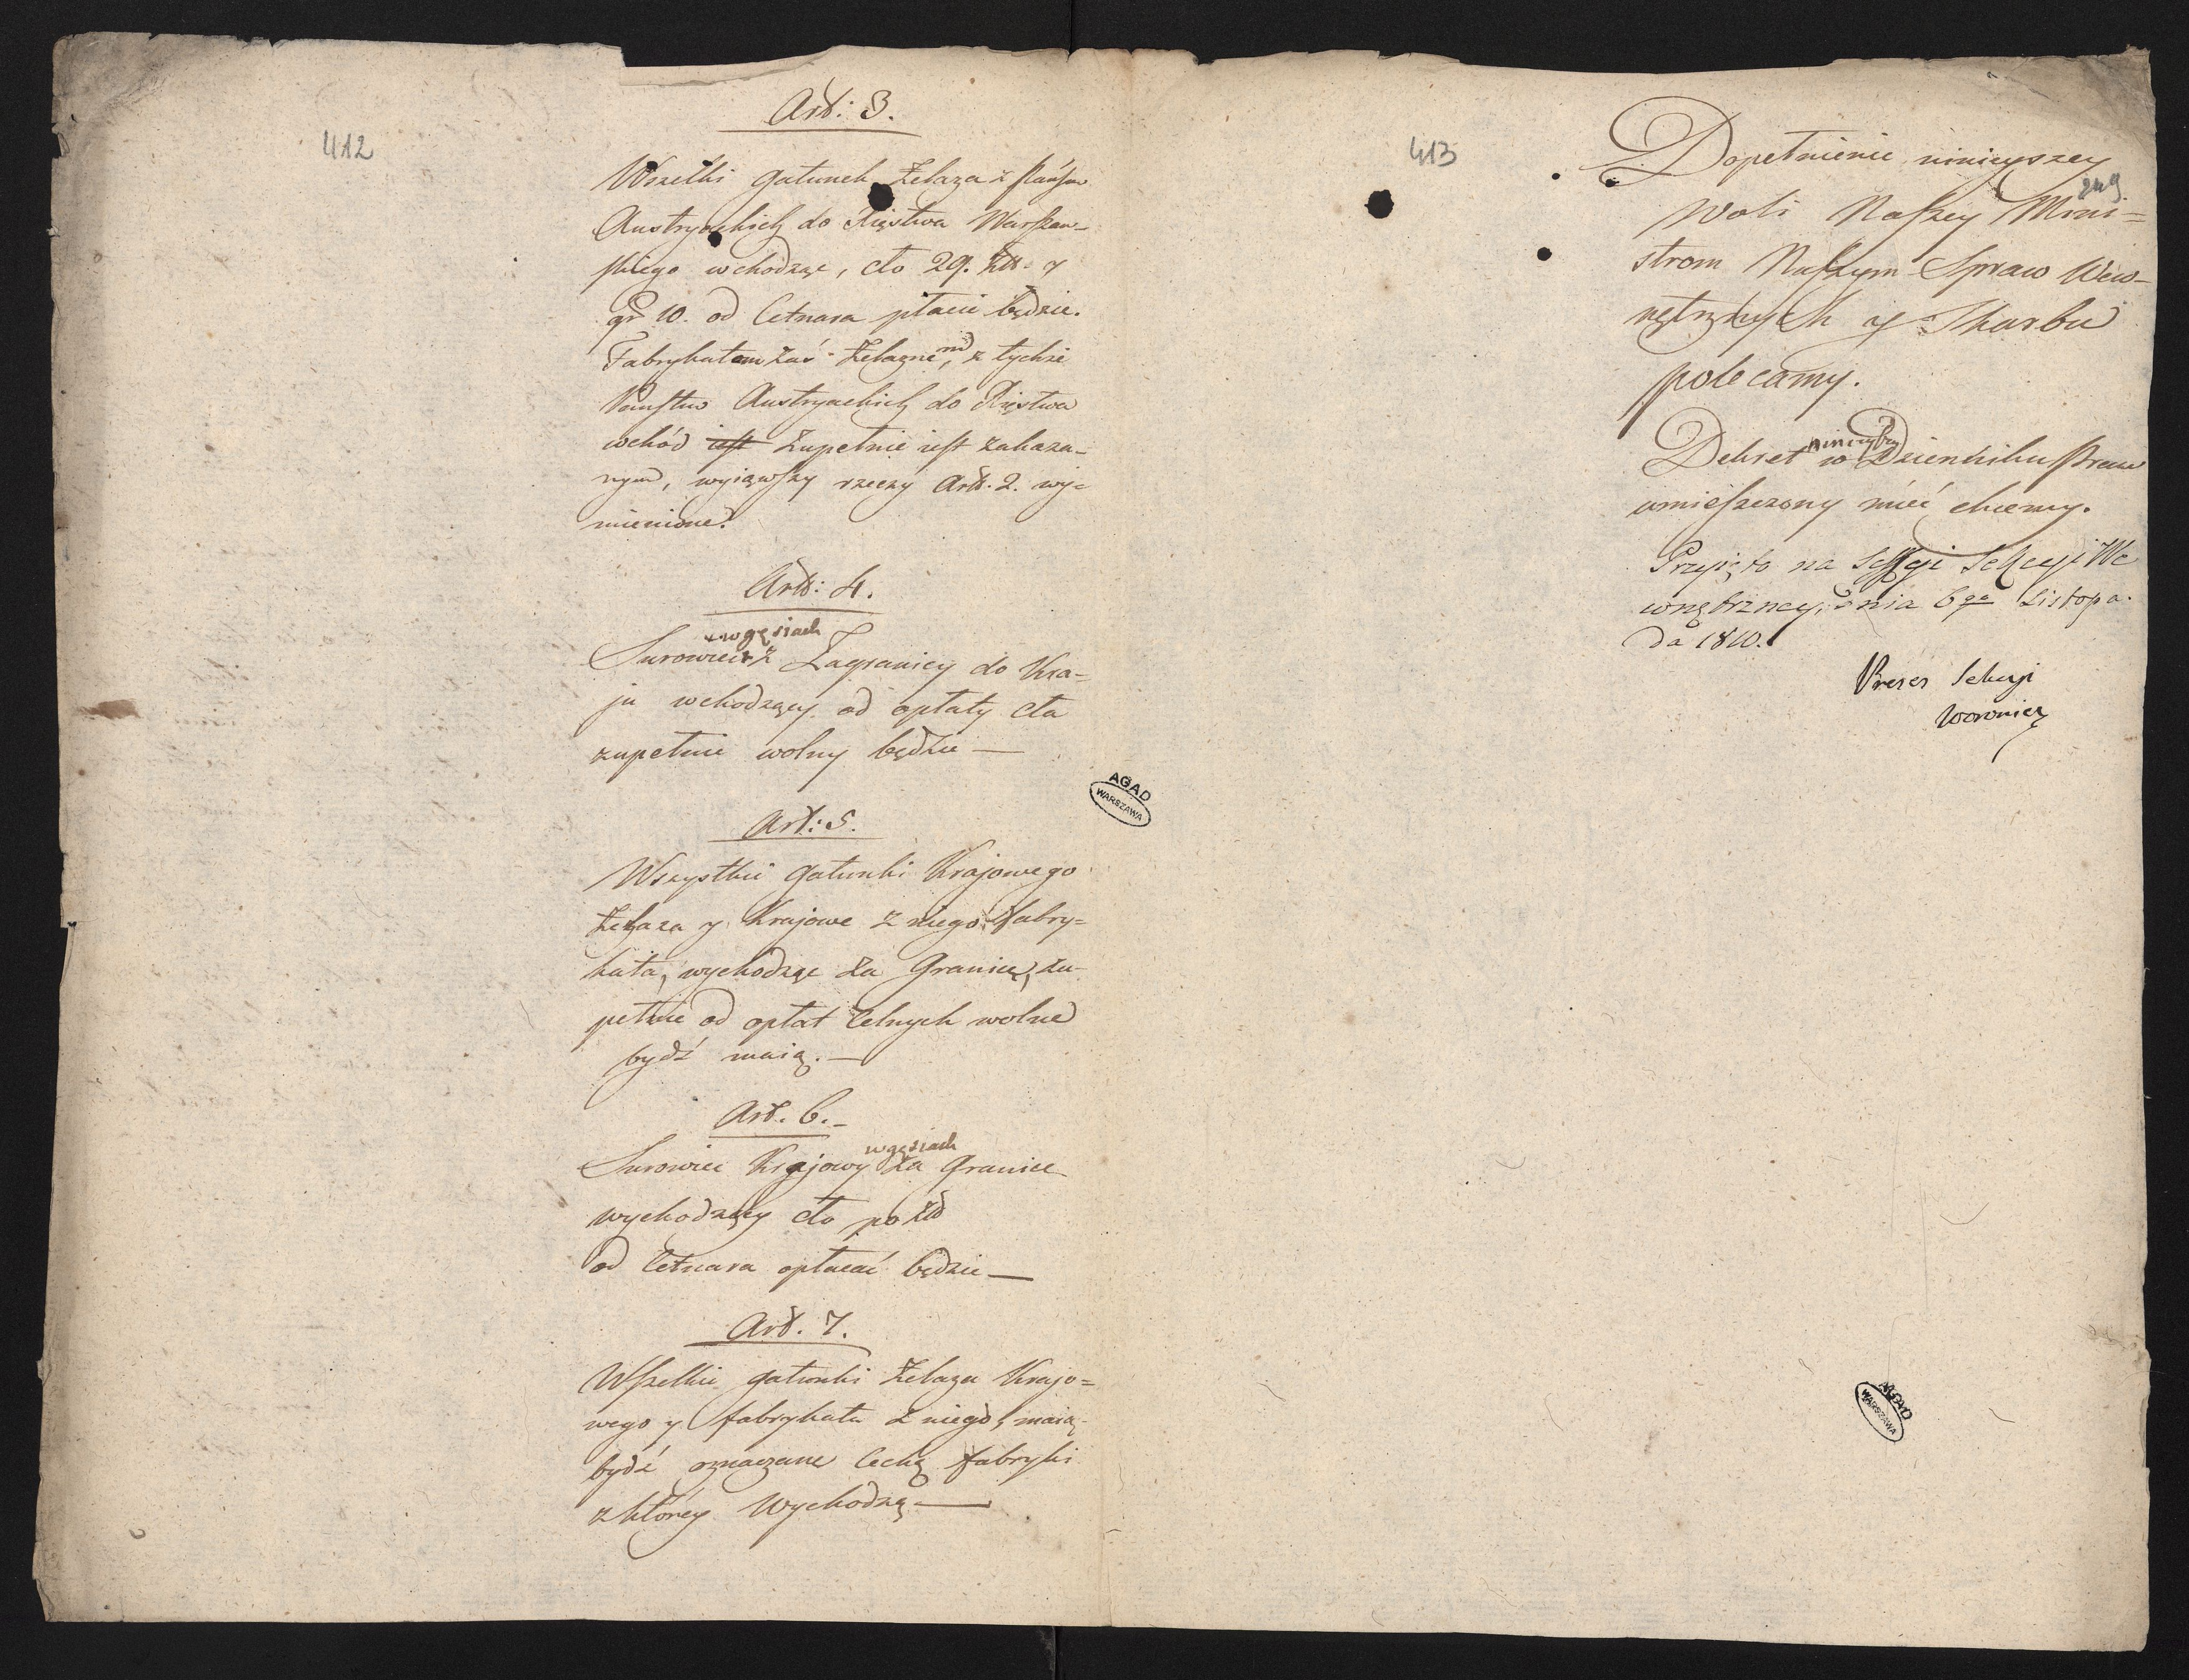 412
Art: 3.
Wszelki gatunek Żelaza z Państw
Austryackich do Xięstwa Warszaw-
skiego wchodzące, cło 29. Złt. y
gr 10. od Cetnara płacić będzie.
Fabrykatom zaś Żelaznem, z tychże
Państw Austryackich do Xięstwa
wchód iest zupełnie iest zakaza-
nym, wyiąwszy rzeczy Art. 2. wy-
mienione.
Art: 4.
w gęsiach
Surowiec z Zagranicy do Kra-
ju wchodzący od opłaty cła
zupełnie wolny będzie —
Art: 5.
Wszystkie gatunki Krajowego
Żelaza y Krajowe z niego fabry-
kata, wychodzące za Granicę, zu-
pełnie od opłat Celnych wolne
bydź maią. —
Art. 6. -
w gęsiach
Surowiec Krajowy za Granice
wychodzący cło po Złt
od Cetnara opłacać będzie —
Art. 7.
Wszelkie gatunki Żelaza Krajo=
wego y fabrykata z niego, maią
bydź oznaczane Cechą fabryki
z którey wychodzą —
AGAD
WARSZAWA
413
Dopełnienie ninieyszey
249
Woli Naszey Mini=
strom Naszym Spraw Wew-
nętrznych y Skarbu
polecamy.
ninieyszy
Dekret w Dzienniku Praw
umieszczony mieć chcemy.
Przyięto na Sessyi Sekcyi We
wnętrzney, dnia 6go Listopa-
da 1810.
Prezes Sekcyi
Woronicz
AGAD
WARSZAWA